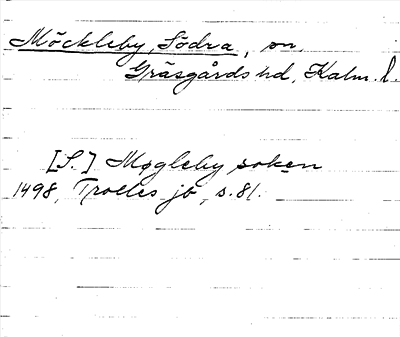 Möckleby, Södra, sn,
Gräsgårds hd, Kalm. l.
[S.] Møgleby soken
1498, Trolles jb, s. 81.